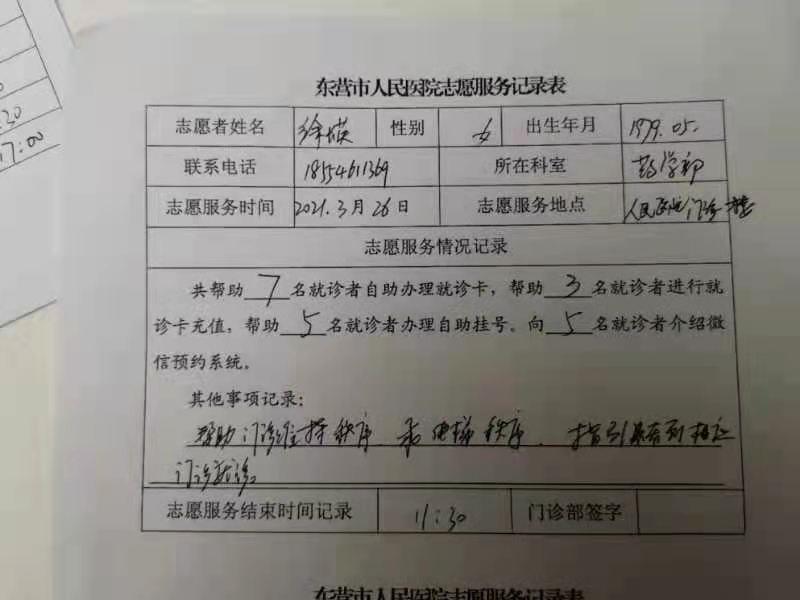 30
17:00
东营市人民医院志愿服务记录表
志愿者姓名 徐瑛 性别 女 出生年月 1979.05.
联系电话 18554611369 所在科室 药学部
志愿服务时间 2021.3月26日 志愿服务地点 人民医院门诊
志愿服务情况记录
共帮助 7 名就诊者自助办理就诊卡，帮助 3 名就诊者进行就
诊卡充值，帮助 5 名就诊者办理自助挂号。向 5 名就诊者介绍微
信预约系统。
其他事项记录：
帮助门诊维持秩序 和电梯秩序、指引患者到相应
门诊就诊。
志愿服务结束时间记录 11:30 门诊部签字
东营市人民医院志愿服务记录表